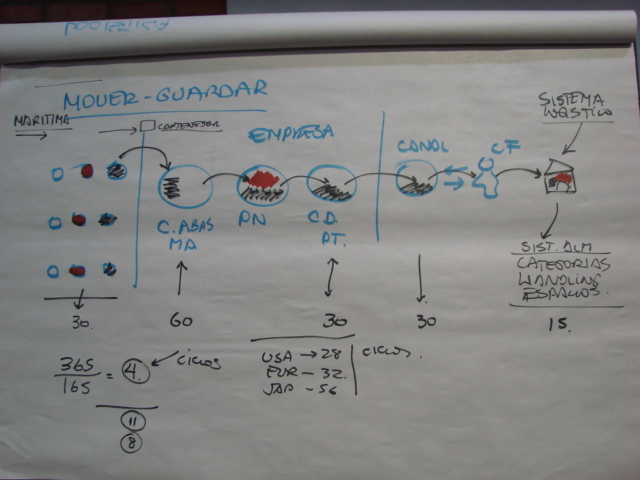 MOVER-GUARDAR
MARITIMA
CONTENEDOR
EMPRESA
CANAL
CF
SISTEMA
LOGÍSTICO
C. ABAS
MA
PN
C.D.
PT.
SIST. ALM
CATEGORIAS
HANDLING
ESPACIOS.
30.
60
30
30
15.
365
165
= 4.
CICLOS
11
8
USA → 28
EUR - 32.
JAP - 56
CICLOS.